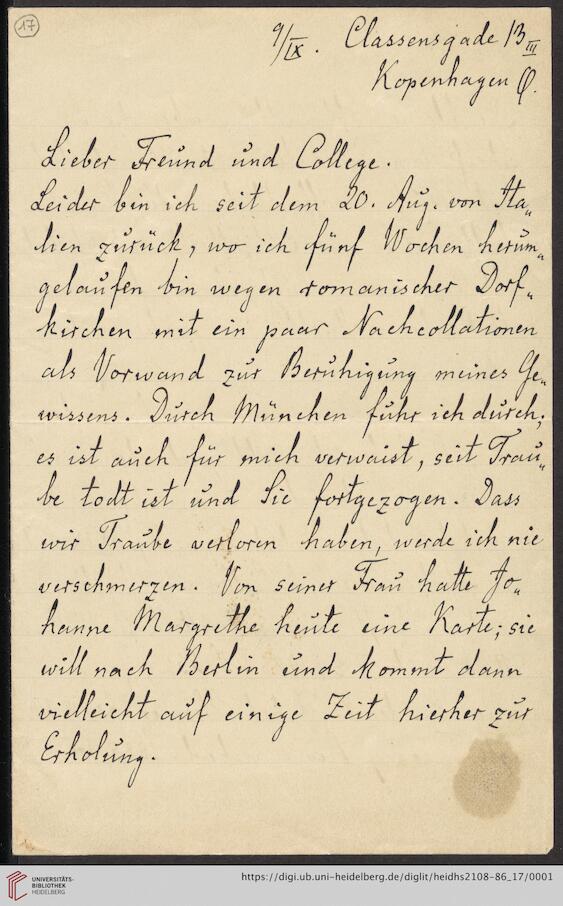 17
9/IX. Classensgade 13 III
Kopenhagen Ø.
Lieber Freund und College.
Leider bin ich seit dem 20. Aug. von Ita„
lien zurück, wo ich fünf Wochen herum„
gelaufen bin wegen romanischer Dorf„
kirchen mit ein paar Nachcollationen
als Vorwand zur Beruhigung meines Ge„
wissens. Durch München fuhr ich durch;
es ist auch für mich verwaist, seit Trau„
be todt ist und Sie fortgezogen. Dass
wir Traube verloren haben, werde ich nie
verschmerzen. Von seiner Frau hatte Jo„
hanne Margrethe heute eine Karte; sie
will nach Berlin und kommt dann
vielleicht auf einige Zeit hierher zur
Erholung.
UNIVERSITÄTS-
BIBLIOTHEK
HEIDELBERG
https://digi.ub.uni-heidelberg.de/diglit/heidhs2108-86_17/0001